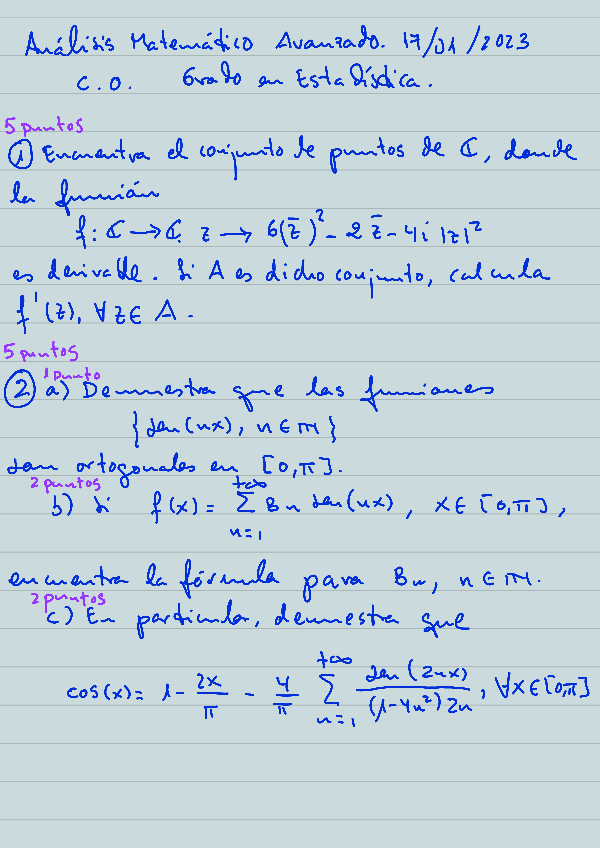 Análisis Matemático Avanzado. 17/01/2023
C.O. Grado en Estadística.
5 puntos
① Encuentra el conjunto de puntos de ℂ, donde
la función
f: ℂ → ℂ z → 6(z̄)² - 2 z̄ - 4i |z|²
es derivable. Si A es dicho conjunto, calcula
f'(z), ∀ z ∈ A.
5 puntos
1 punto
② a) Demuestra que las funciones
{sen(nx), n ∈ ℕ}
son ortogonales en [0,π].
2 puntos
b) Si f(x) = ∑_{n=1}^{+∞} Bn sen(nx), x ∈ [0,π],
encuentra la fórmula para Bn, n ∈ ℕ.
2 puntos
c) En particular, demuestra que
cos(x) = 1 - 2x/π - 4/π ∑_{n=1}^{+∞} sen(2nx)/((1-4n²)2n), ∀x ∈ [0,π]